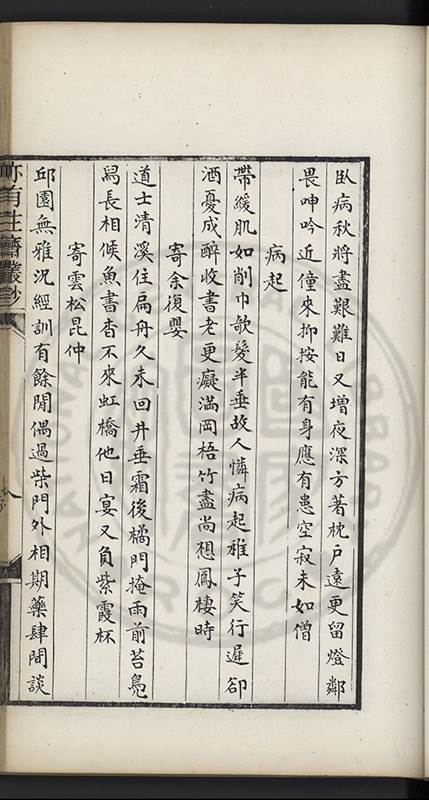 臥病秋將盡艱難日又增夜深方著枕戶遠更留燈鄰
畏呻吟近僮來抑按能有身應有患空寂未如僧
病起
帶緩肌如削巾欹髮半垂故人憐病起稚子笑行遲卻
酒憂成醉收書老更癡滿岡梧竹盡尚想鳳棲時
寄余復嬰
道士清溪住扁舟久未回井垂霜後橘門掩雨前苔鳧
舄長相候魚書杳不來虹橋他日宴又負紫霞杯
寄雲松昆仲
邱園無雅況經訓有餘閒偶過柴門外相期藥肆間談
亦有生齋叢鈔